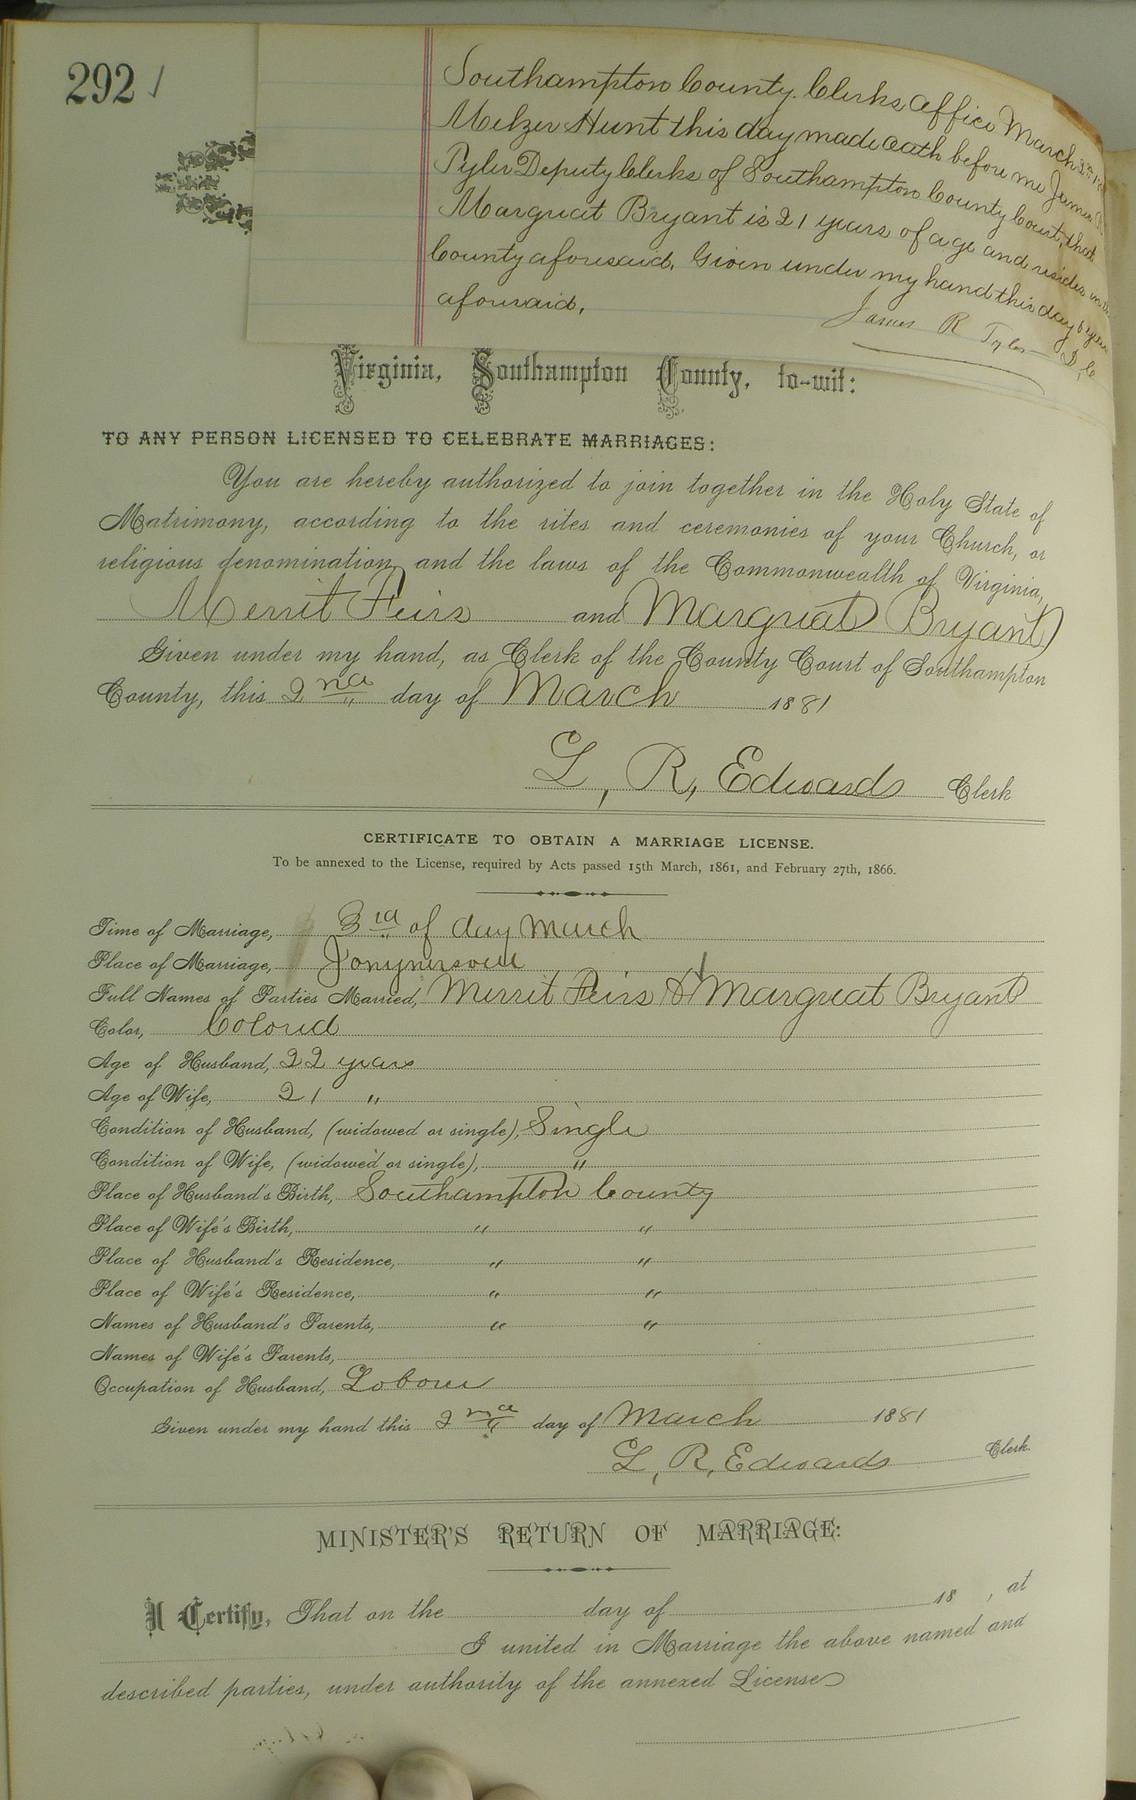 292
Southampton County Clerks Office March 2nd
Melzer Hunt this day made oath before me James R
Tyler Deputy Clerks of Southampton County Court, that
Marguat Bryant is 21 years of age and resides in the
County aforesaid. Given under my hand this day &
aforesaid.
James R Tyler D, C
Virginia, Southampton County, to-wit:
TO ANY PERSON LICENSED TO CELEBRATE MARRIAGES:
You are hereby authorized to join together in the Holy State of
Matrimony, according to the rites and ceremonies of your Church, or
religious denomination, and the laws of the Commonwealth of Virginia,
Merrit and Marguat Bryant
Given under my hand, as Clerk of the County Court of Southampton
County, this 2nd day of March 1881
L, R, Edwards Clerk
CERTIFICATE TO OBTAIN A MARRIAGE LICENSE.
To be annexed to the License, required by Acts passed 15th March, 1861, and February 27th, 1866.
Time of Marriage, 3rd of day March
Place of Marriage,
Full Names of Parties Married, Merrit & Marguat Bryant
Color, Colord
Age of Husband, 22 years
Age of Wife, 21 "
Condition of Husband, (widowed or single), Single
Condition of Wife, (widowed or single), "
Place of Husband's Birth, Southampton County
Place of Wife's Birth, " "
Place of Husband's Residence, " "
Place of Wife's Residence, " "
Names of Husband's Parents, " "
Names of Wife's Parents,
Occupation of Husband, Laborer
Given under my hand this 2nd day of March 1881
L, R, Edwards Clerk.
MINISTER'S RETURN OF MARRIAGE:
I Certify, That on the day of 18 , at
I united in Marriage the above named and
described parties, under authority of the annexed License